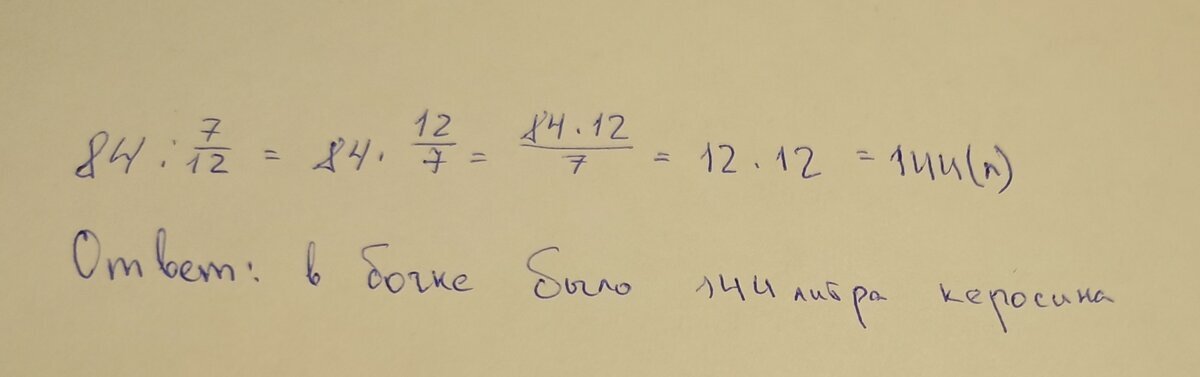 84 : 7/12 = 84 · 12/7 = 84·12/7 = 12 · 12 = 144(л)
Ответ: в бочке было 144 литра керосина